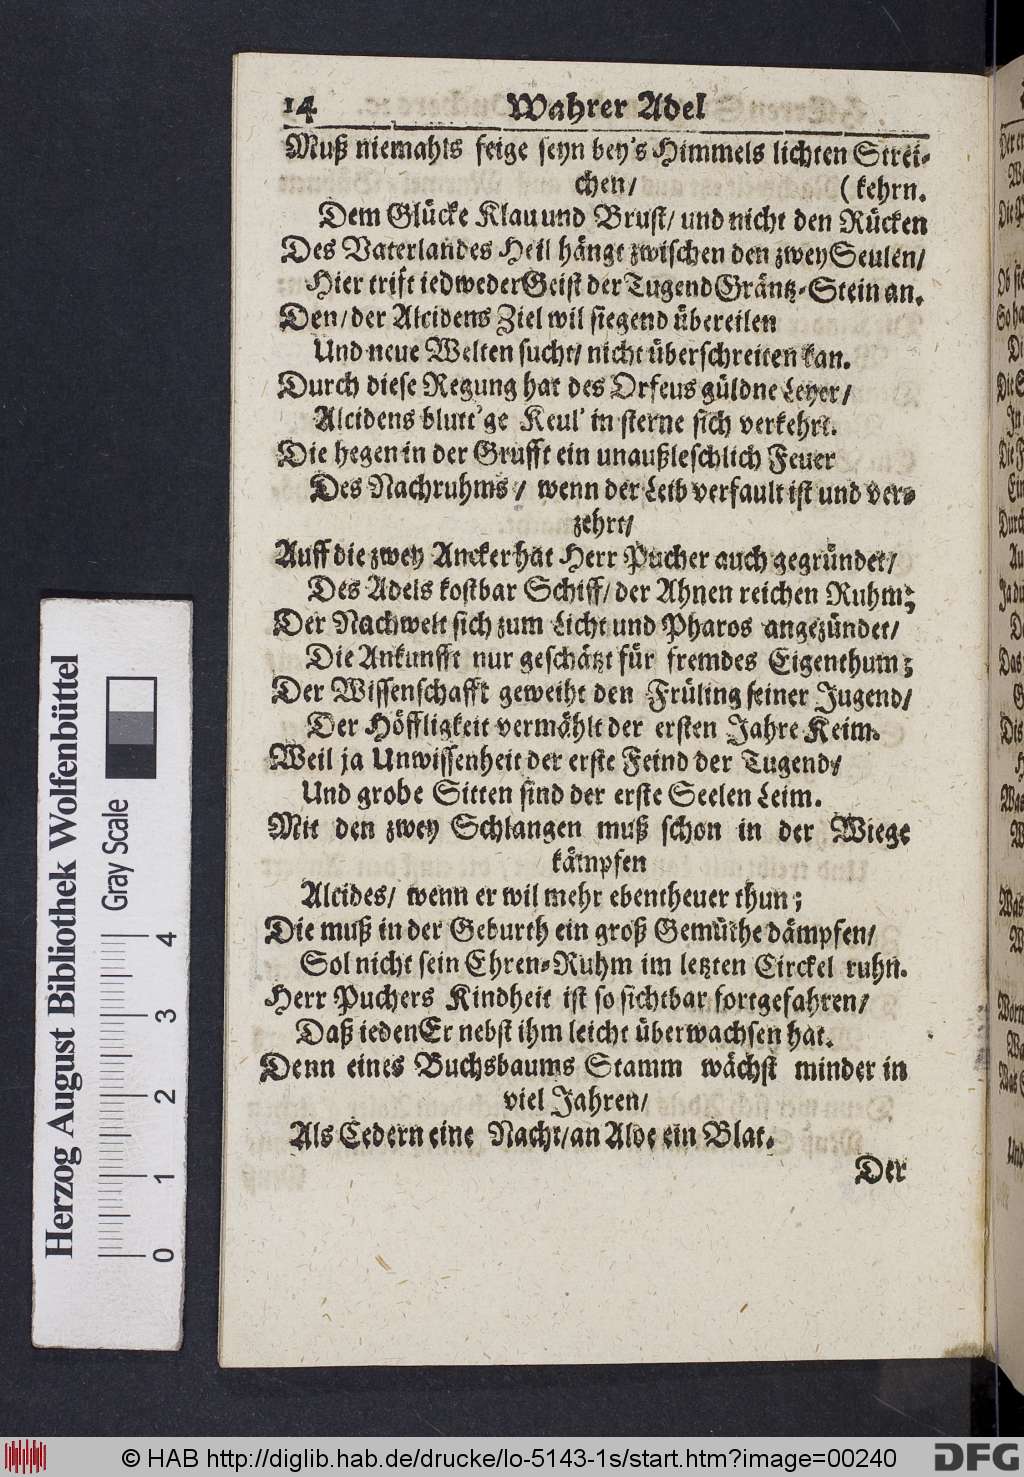 14 Wahrer Adel
Muß niemahls feige seyn bey's Himmels lichten Strei-
chen/ (kehrn.
Dem Glücke Klau und Brust/ und nicht den Rücken
Des Vaterlandes Heil hängt zwischen den zwey Seulen/
Hier trift iedweder Geist der Tugend Gräntz-Stein an.
Den/ der Alcidens Ziel wil siegend übereilen
Und neue Welten sucht/ nicht überschreiten kan.
Durch diese Regung hat des Orfeus güldne Leyer/
Alcidens blutt'ge Keul' in sterne sich verkehrt.
Die hegen in der Grufft ein unaußleschlich Feuer
Des Nachruhms/ wenn der Leib verfault ist und ver-
zehrt/
Auff die zwey Ancker hat Herr Pucher auch gegründet/
Des Adels kostbar Schiff/ der Ahnen reichen Ruhm;
Der Nachwelt sich zum Licht und Pharos angezündet/
Die Ankunfft nur geschätzt für fremdes Eigenthum;
Der Wissenschafft geweiht den Früling seiner Jugend/
Der Höffligkeit vermählt der ersten Jahre Keim.
Weil ja Unwissenheit der erste Feind der Tugend/
Und grobe Sitten sind der erste Seelen Leim.
Mit den zwey Schlangen muß schon in der Wiege
kämpfen
Alcides/ wenn er wil mehr ebentheuer thun;
Die muß in der Geburth ein groß Gemüthe dämpfen/
Sol nicht sein Ehren-Ruhm im letzten Circkel ruhn.
Herr Puchers Kindheit ist so sichtbar fortgefahren/
Daß ieden Er nebst ihm leicht überwachsen hat.
Denn eines Buchsbaums Stamm wächst minder in
viel Jahren/
Als Cedern eine Nacht/ an Aloe ein Blat.
Der
Herzog August Bibliothek Wolfenbüttel
Gray Scale
0 1 2 3 4
© HAB http://diglib.hab.de/drucke/lo-5143-1s/start.htm?image=00240
DFG